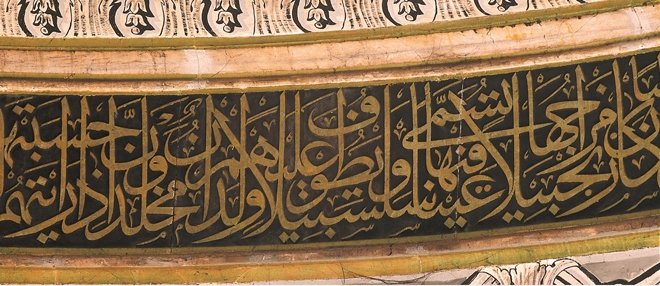 كان مزاجها زنجبيلا عينا فيها تسمى سلسبيلا ويطوف عليهم ولدان مخلدون اذا رايتهم حسبتهم